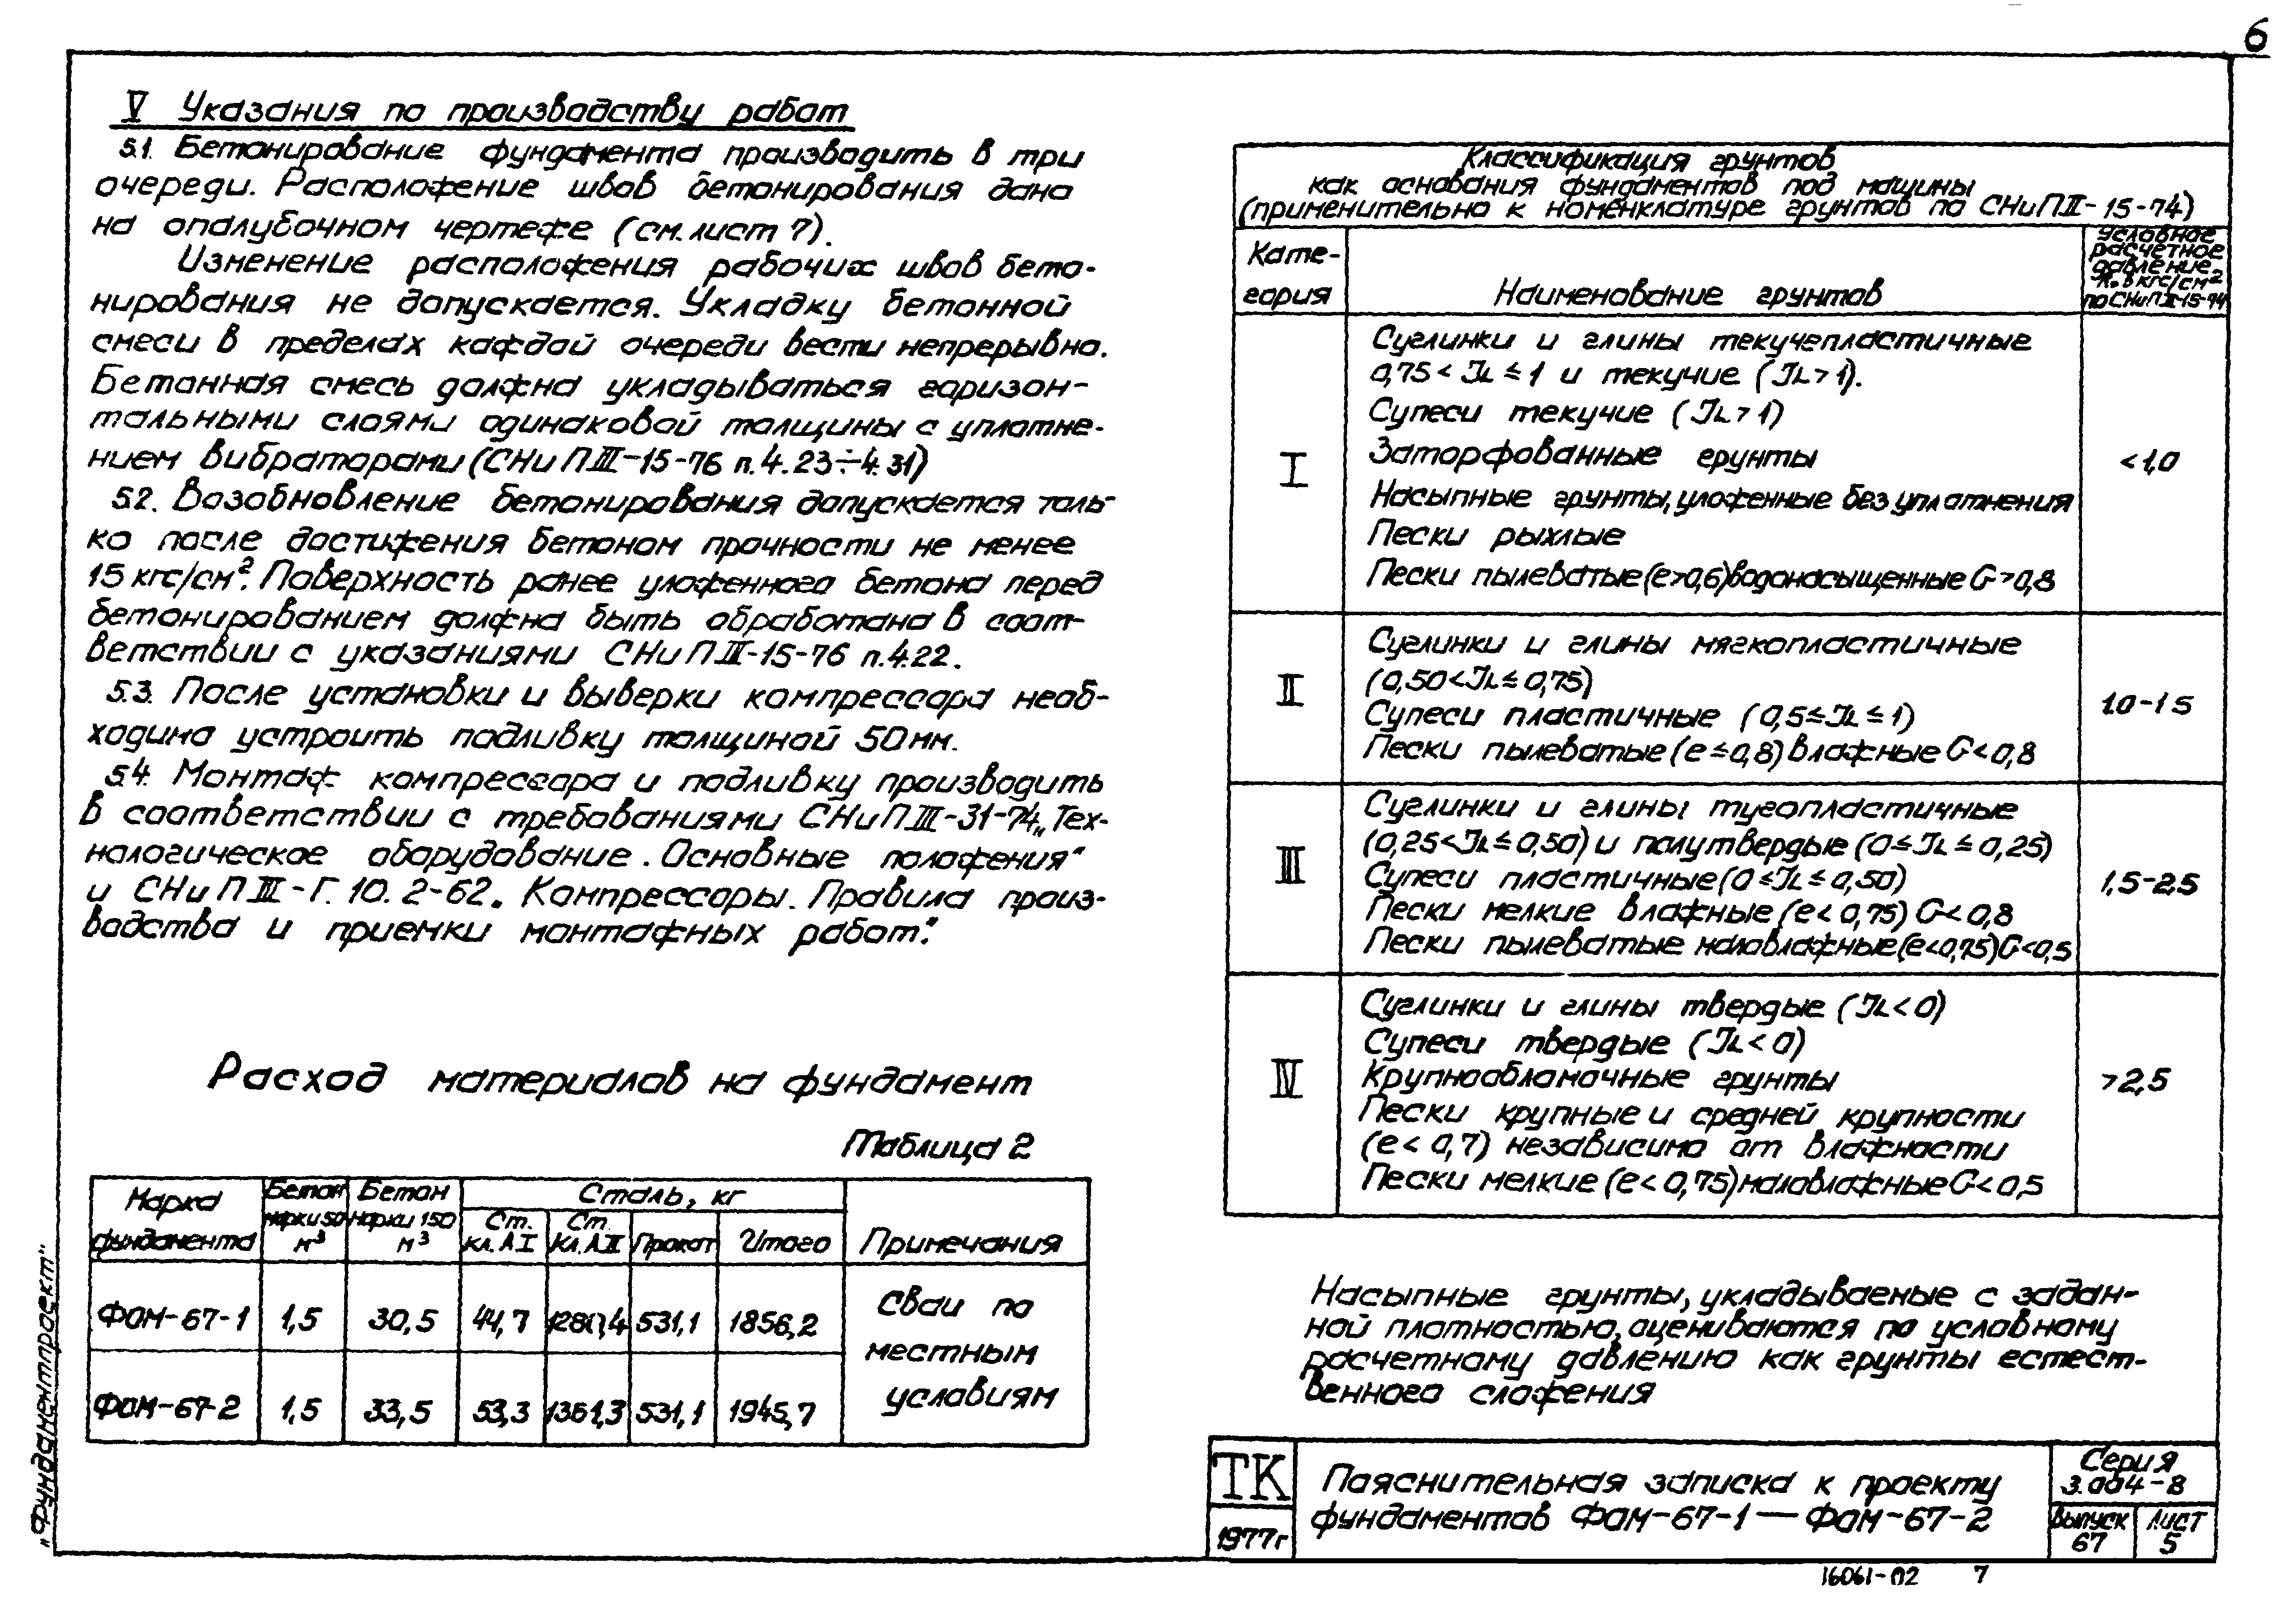 6
V Указания по производству работ
5.1. Бетонирование фундамента производить в три
очереди. Расположение швов бетонирования дано
на опалубочном чертеже (см. лист 7).
Изменение расположения рабочих швов бето-
нирования не допускается. Укладку бетонной
смеси в пределах каждой очереди вести непрерывно.
Бетонная смесь должна укладываться горизон-
тальными слоями одинаковой толщины с уплотне-
нием вибраторами (СНиП III-15-76 п. 4.23÷4.31)
5.2. Возобновление бетонирования допускается толь-
ко после достижения бетоном прочности не менее
15 кгс/см². Поверхность ранее уложенного бетона перед
бетонированием должна быть обработана в соот-
ветствии с указаниями СНиП III-15-76 п.4.22.
5.3. После установки и выверки компрессора необ-
ходимо устроить подливку толщиной 50 мм.
5.4. Монтаж компрессора и подливку производить
в соответствии с требованиями СНиП III-31-74 „Тех-
нологическое оборудование. Основные положения“
и СНиП III-Г. 10. 2-62. Компрессоры. Правила произ-
водства и приемки монтажных работ."
Расход материалов на фундамент
Таблица 2
Марка фундамента
Бетон марки 50 м³
Бетон марки 150 м³
Сталь, кг
Ст. кл. А I
Ст. кл. А II
Прокат
Итого
Примечания
ФОМ-67-1 1,5 30,5 44,7 1280,4 531,1 1856,2
ФОМ-67-2 1,5 33,5 53,3 1361,3 531,1 1945,7
Сваи по
местным
условиям
Классификация грунтов
как основания фундаментов под машины
(применительно к номенклатуре грунтов по СНиП II-15-74)
Кате-
гория
Наименование грунтов
Условное
расчетное
давление
R₀ в кгс/см²
по СНиП II-15-74
I
Суглинки и глины текучепластичные
0,75 < JL ≤ 1 и текучие (JL > 1).
Супеси текучие (JL > 1)
Заторфованные грунты
Насыпные грунты, уложенные без уплотнения
Пески рыхлые
Пески пылеватые (e>0,6) водонасыщенные G>0,8
<1,0
II
Суглинки и глины мягкопластичные
(0,50 < JL ≤ 0,75)
Супеси пластичные (0,5 ≤ JL ≤ 1)
Пески пылеватые (e ≤ 0,8) влажные G<0,8
1.0-1 5
III
Суглинки и глины тугопластичные
(0,25 < JL ≤ 0,50) и полутвердые (0 ≤ JL ≤ 0,25)
Супеси пластичные (0 ≤ JL ≤ 0,50)
Пески мелкие влажные (e < 0,75) G < 0,8
Пески пылеватые маловлажные (e<0,75) G<0,5
1,5-2.5
IV
Суглинки и глины твердые (JL < 0)
Супеси твердые (JL < 0)
Крупнообломочные грунты
Пески крупные и средней крупности
(e < 0,7) независимо от влажности
Пески мелкие (e < 0,75) маловлажные G < 0,5
>2,5
Насыпные грунты, укладываемые с задан-
ной плотностью, оцениваются по условному
расчетному давлению как грунты естест-
венного сложения
„Фундаментпроект"
ТК
1977г
Пояснительная записка к проекту
фундаментов ФОМ-67-1 — ФОМ-67-2
Серия
3.004-8
Выпуск
67
Лист
5
16061-02 7